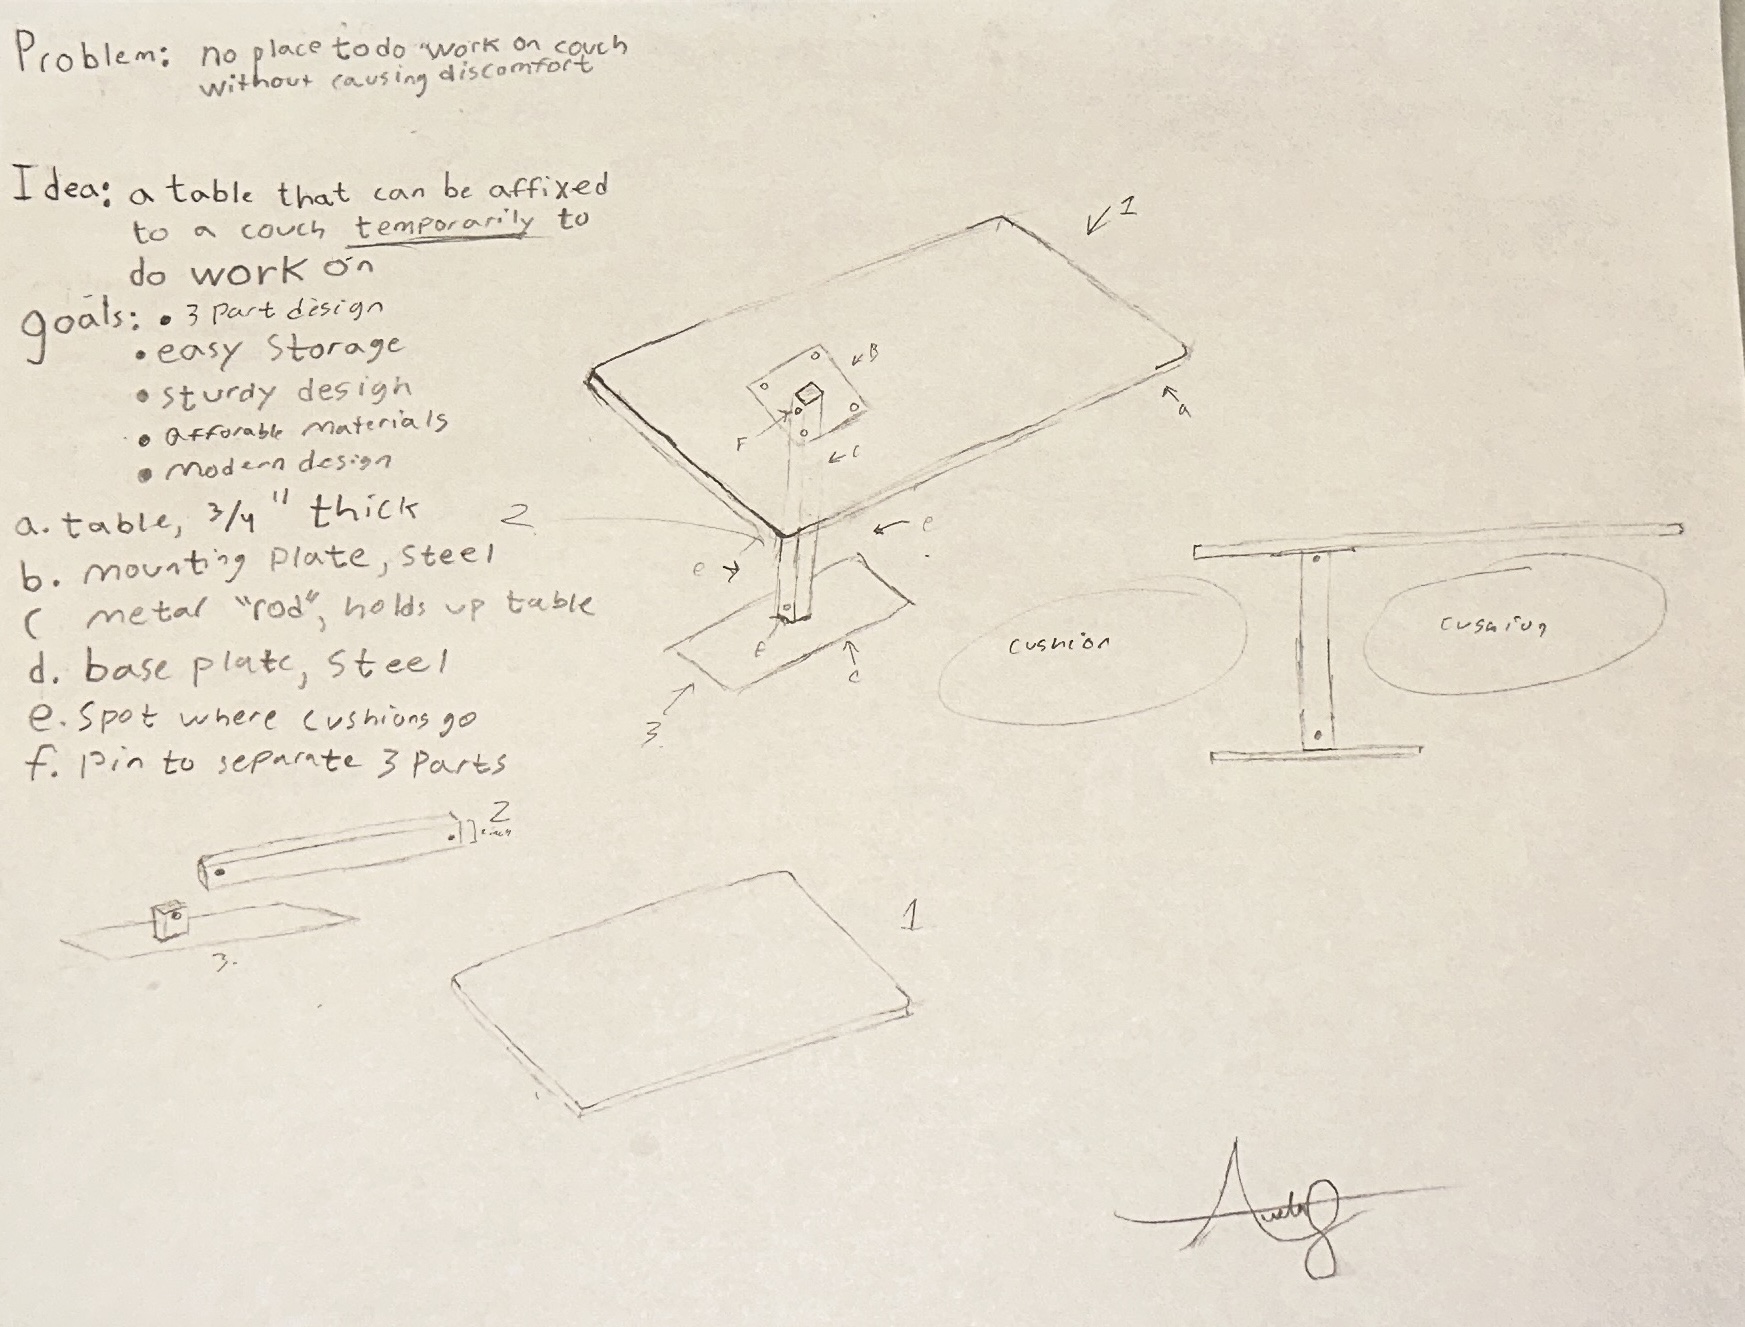 Problem: no place to do work on couch
without causing discomfort
Idea: a table that can be affixed
to a couch temporarily to
do work on
goals: • 3 Part design
• easy storage
• sturdy design
• afforable materials
• modern design
a. table, 3/4" thick
b. mounting plate, steel
c metal "rod", holds up table
d. base plate, steel
e. spot where cushions go
f. pin to separate 3 parts
1
B
a
F
c
2
e
e
F
c
3.
cushion
cushion
2
3.
1